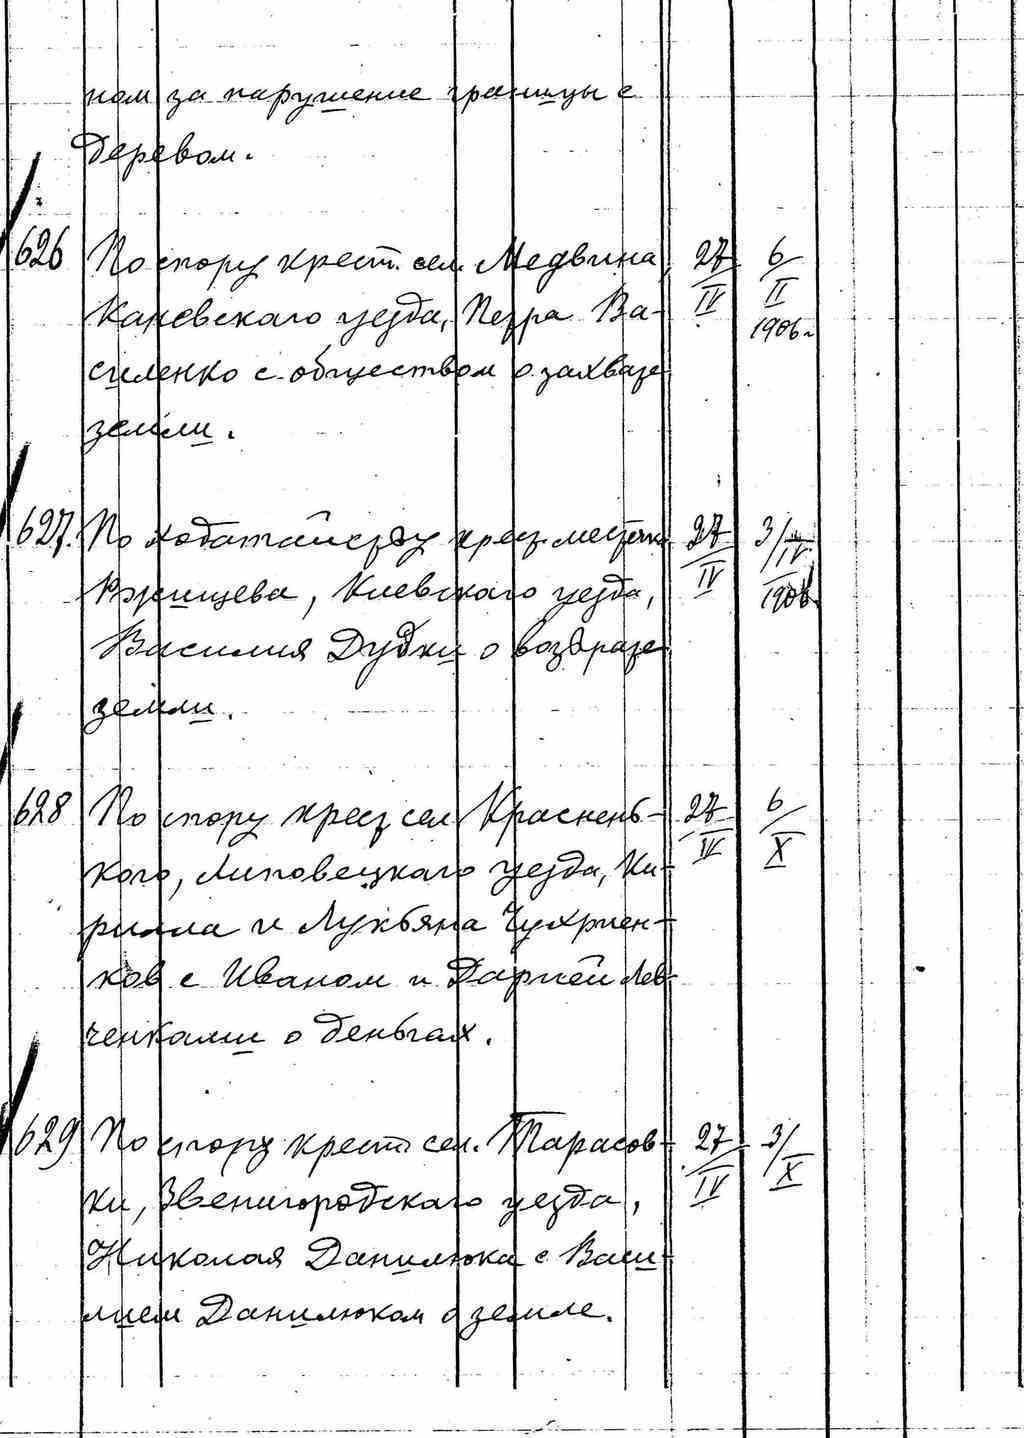 ном за нарушение границы с
деревом.
626 По спору крест. сел. Медвина 27/IV 6/II 1906 г.
Каневского уезда, Петра Ва-
силенко с обществом о захвате
земли.
627. По ходатайству крест. местечка 27/IV 3/IV 1906
Ржищева, Киевского уезда,
Василия Дудки о возврате
земли.
628 По спору крест. сел. Краснень- 27/IV 6/X
кого, Липовецкаго уезда, Ки-
рилла и Лукьяна Чухриен-
ков с Иваном и Дарией Лев-
ченками о деньгах.
629 По спору крест. сел. Тарасов- 27/IV 3/X
ки, Звенигородскаго уезда,
Николая Данилюка с Васи-
лием Данилюком о земле.